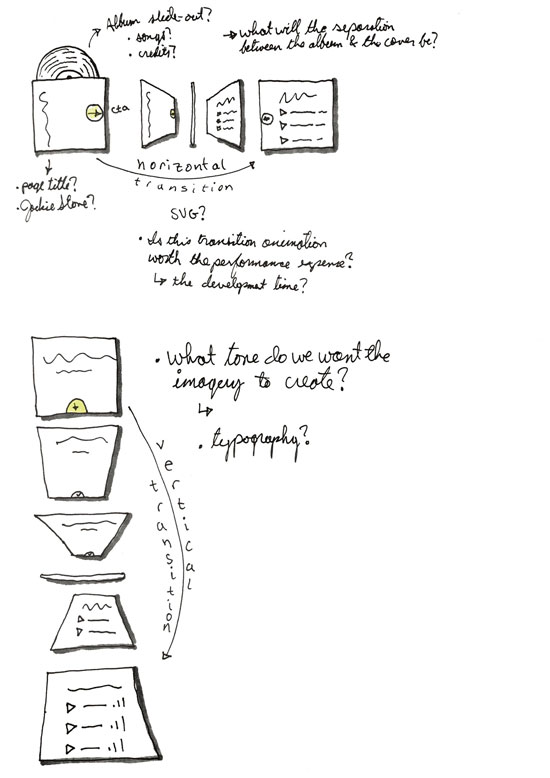 Album slide-out?
• songs?
• credits?
→ what will the separation
between the album & the cover be?
cta
horizontal
transition
• page title?
• Jackie Stone?
SVG?
• Is this transition animation
worth the performance expense?
↳ the development time?
• What tone do we want the
imagery to create?
↳
• typography?
vertical
transition